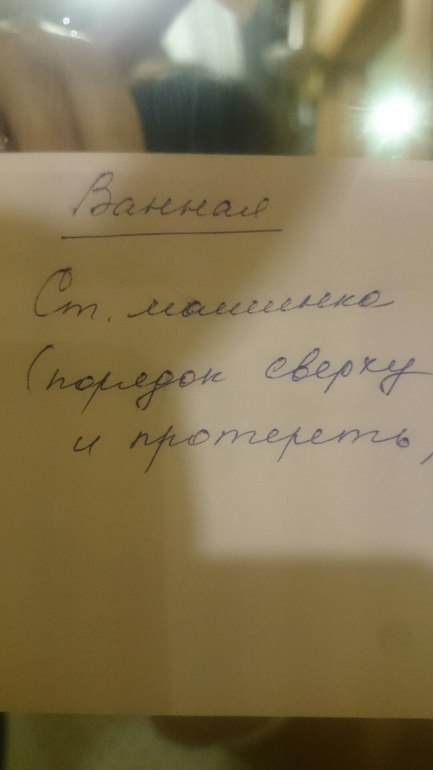 Ванная
Ст. машинка
(порядок сверху
и протереть)